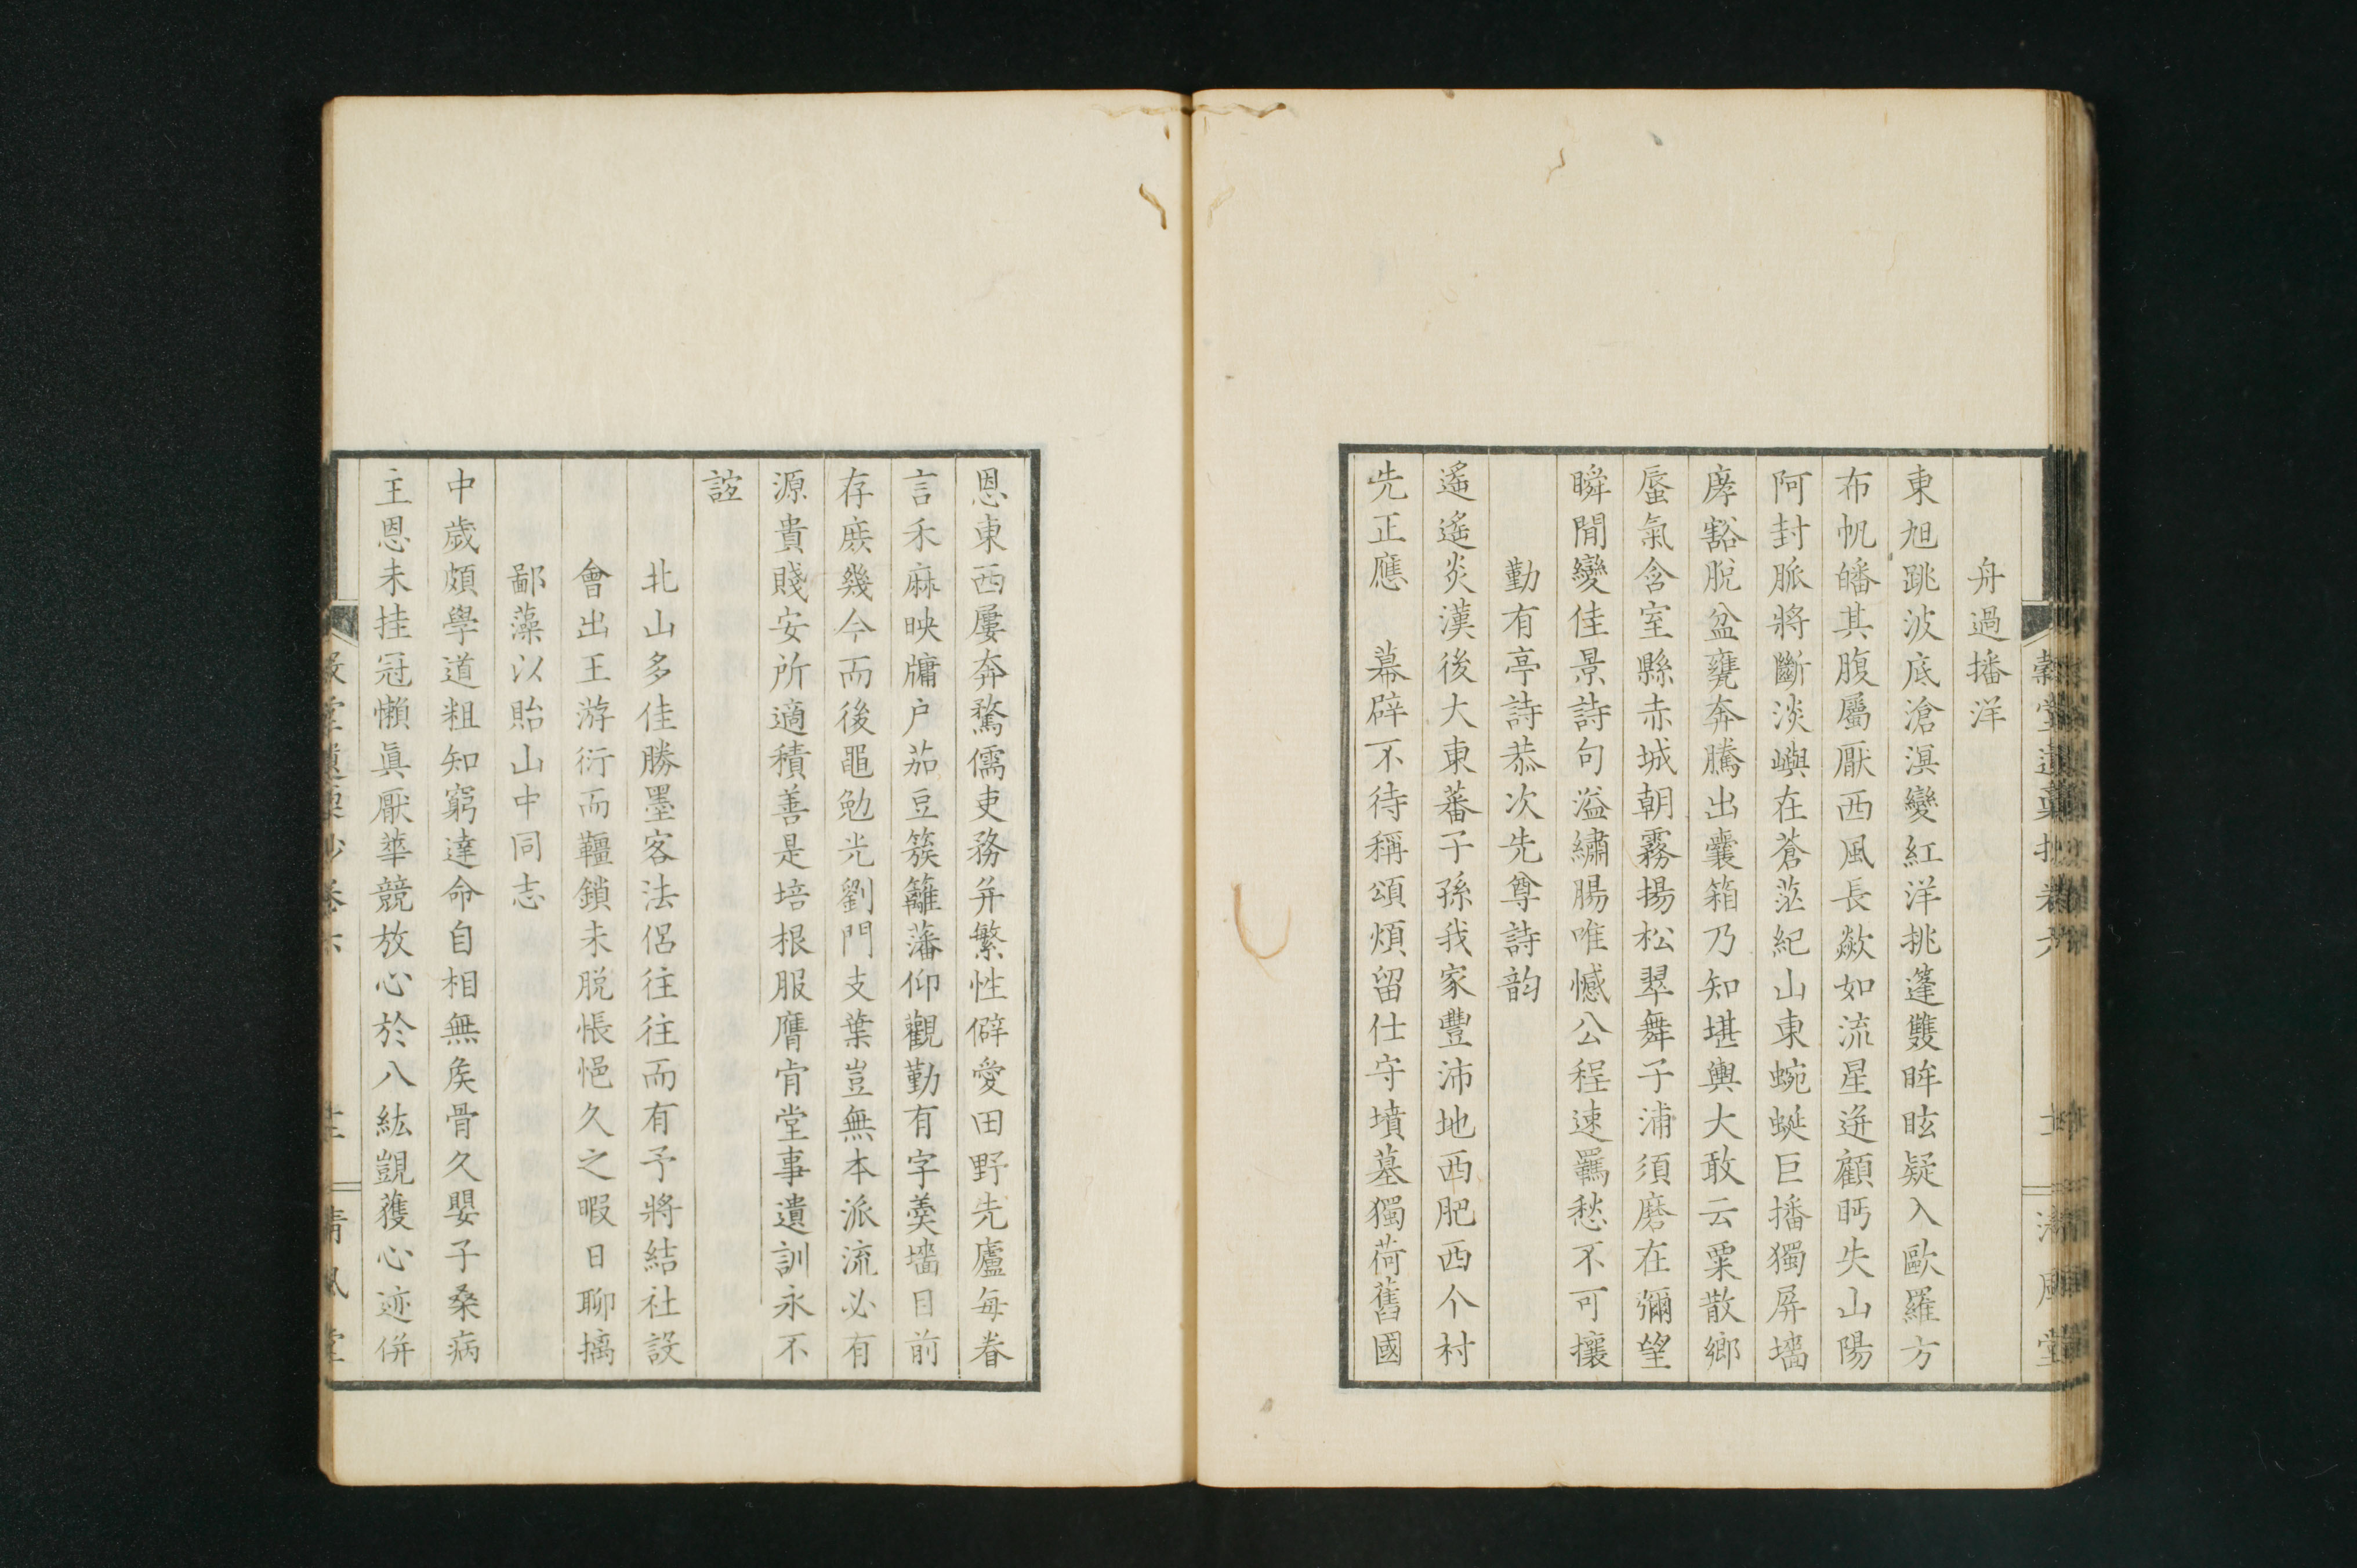 舟過播洋
東旭跳波底滄溟變紅洋挑蓬雙眸眩疑入歐羅方
布帆皤其腹屬厭西風長歘如流星迸顧眄失山陽
阿封脈將斷淡嶼在蒼茫紀山東蜿蜒巨播獨屏墻
庨豁脫盆甕奔騰出囊箱乃知堪輿大敢云粟散鄉
蜃氣含室縣赤城朝霧揚松翠舞子浦須磨在彌望
瞬間變佳景詩句溢繡腸唯憾公程速羈愁不可攘
勤有亭詩恭次先尊詩韵
遙遙炎漢後大東蕃子孫我家豐沛地西肥西个村
先正應 幕辟不待稱頌煩留仕守墳墓獨荷舊國
恩東西屢奔騖儒吏務并繁性僻愛田野先廬每眷
言禾麻映牖户茄豆簇籬藩仰觀勤有字羹墻目前
存庶幾今而後黽勉光劉門支葉豈無本派流必有
源貴賤安所適積善是培根服膺肯堂事遺訓永不
諠
北山多佳勝墨客法侶往往而有予將結社設
會出王游衍而韁鎖未脱悵悒久之暇日聊摛
鄙藻以貽山中同志
中歲頗學道粗知窮達命自相無矦骨久嬰子桑病
主恩未挂冠懶眞厭華競放心於八紘覬獲心迹併